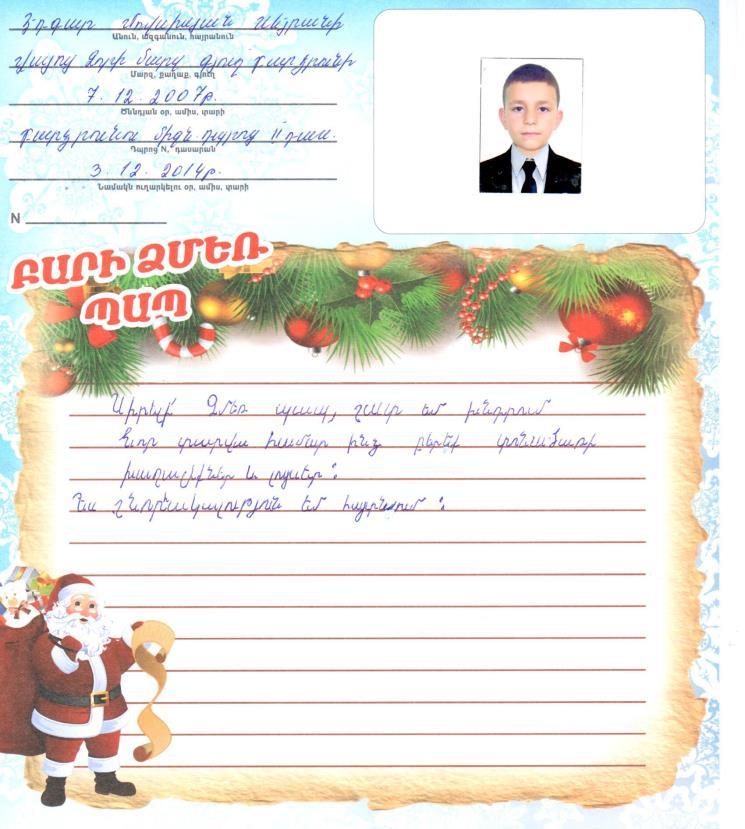 Էդգար Մուրադյան Սեյրանի
Անուն, ազգանուն, հայրանուն
Վայոց Ձորի մարզ գյուղ Խաչիկ
Մարզ, քաղաք, գյուղ
7.12.2007թ.
Ծննդյան օր, ամիս, տարի
միջն դպրոց II դաս.
Դպրոց N, դասարան
3.12.2014թ.
Նամակն ուղարկելու օր, ամիս, տարի
N
ԲԱՐԻ ՁՄԵՌ
ՊԱՊ
Սիրելի Ձմեռ պապ, շատ եմ խնդրում
Նոր տարվա համար ինձ բերեք տոնածառի
խաղալիքներ և լույսեր:
Ես շնորհակալություն եմ հայտնում: